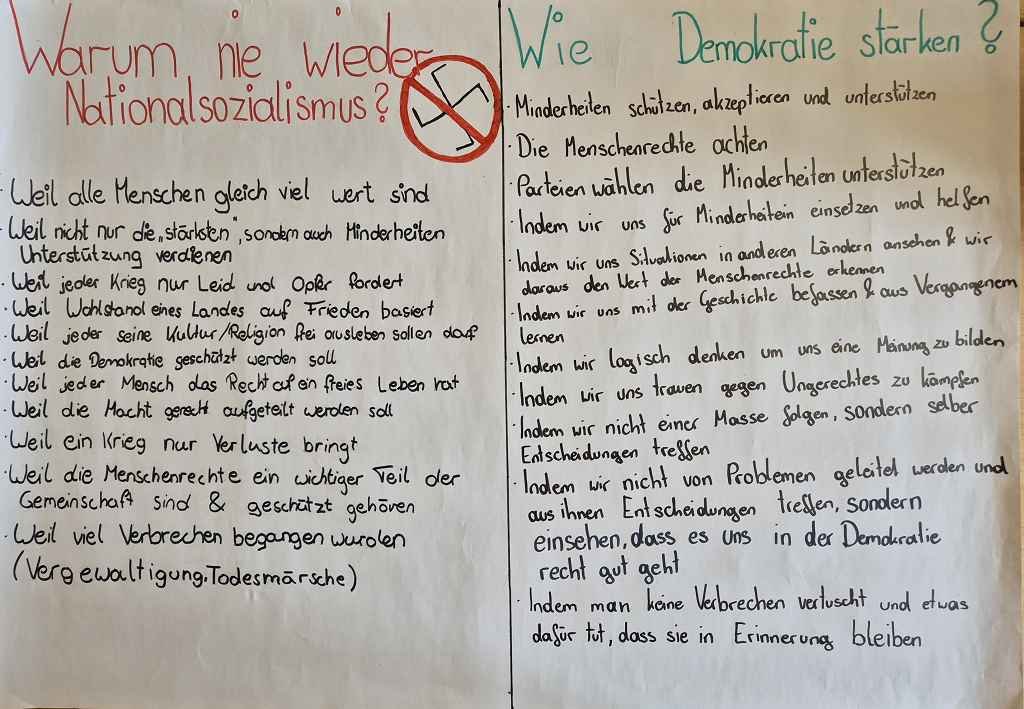 Warum nie wieder
Nationalsozialismus?
· Weil alle Menschen gleich viel wert sind
· Weil nicht nur die „stärksten", sondern auch Minderheiten
Unterstützung verdienen
· Weil jeder Krieg nur Leid und Opfer fordert
· Weil Wohlstand eines Landes auf Frieden basiert
· Weil jeder seine Kultur/Religion frei ausleben sollen darf
· Weil die Demokratie geschützt werden soll
· Weil jeder Mensch das Recht auf ein freies Leben hat
· Weil die Macht gerecht aufgeteilt werden soll
· Weil ein Krieg nur Verluste bringt
· Weil die Menschenrechte ein wichtiger Teil der
Gemeinschaft sind & geschützt gehören
· Weil viel Verbrechen begangen wurden
(Vergewaltigung, Todesmärsche)
Wie Demokratie stärken?
· Minderheiten schützen, akzeptieren und unterstützen
· Die Menschenrechte achten
· Parteien wählen die Minderheiten unterstützen
· Indem wir uns für Minderheitein einsetzen und helfen
· Indem wir uns Situationen in anderen Ländern ansehen & wir
daraus den Wert der Menschenrechte erkennen
· Indem wir uns mit der Geschichte befassen & aus Vergangenem
lernen
· Indem wir logisch denken um uns eine Meinung zu bilden
· Indem wir uns trauen gegen Ungerechtes zu kämpfen
· Indem wir nicht einer Masse folgen, sondern selber
Entscheidungen treffen
· Indem wir nicht von Problemen geleitet werden und
aus ihnen Entscheidungen treffen, sondern
einsehen, dass es uns in der Demokratie
recht gut geht
· Indem man keine Verbrechen vertuscht und etwas
dafür tut, dass sie in Erinnerung bleiben